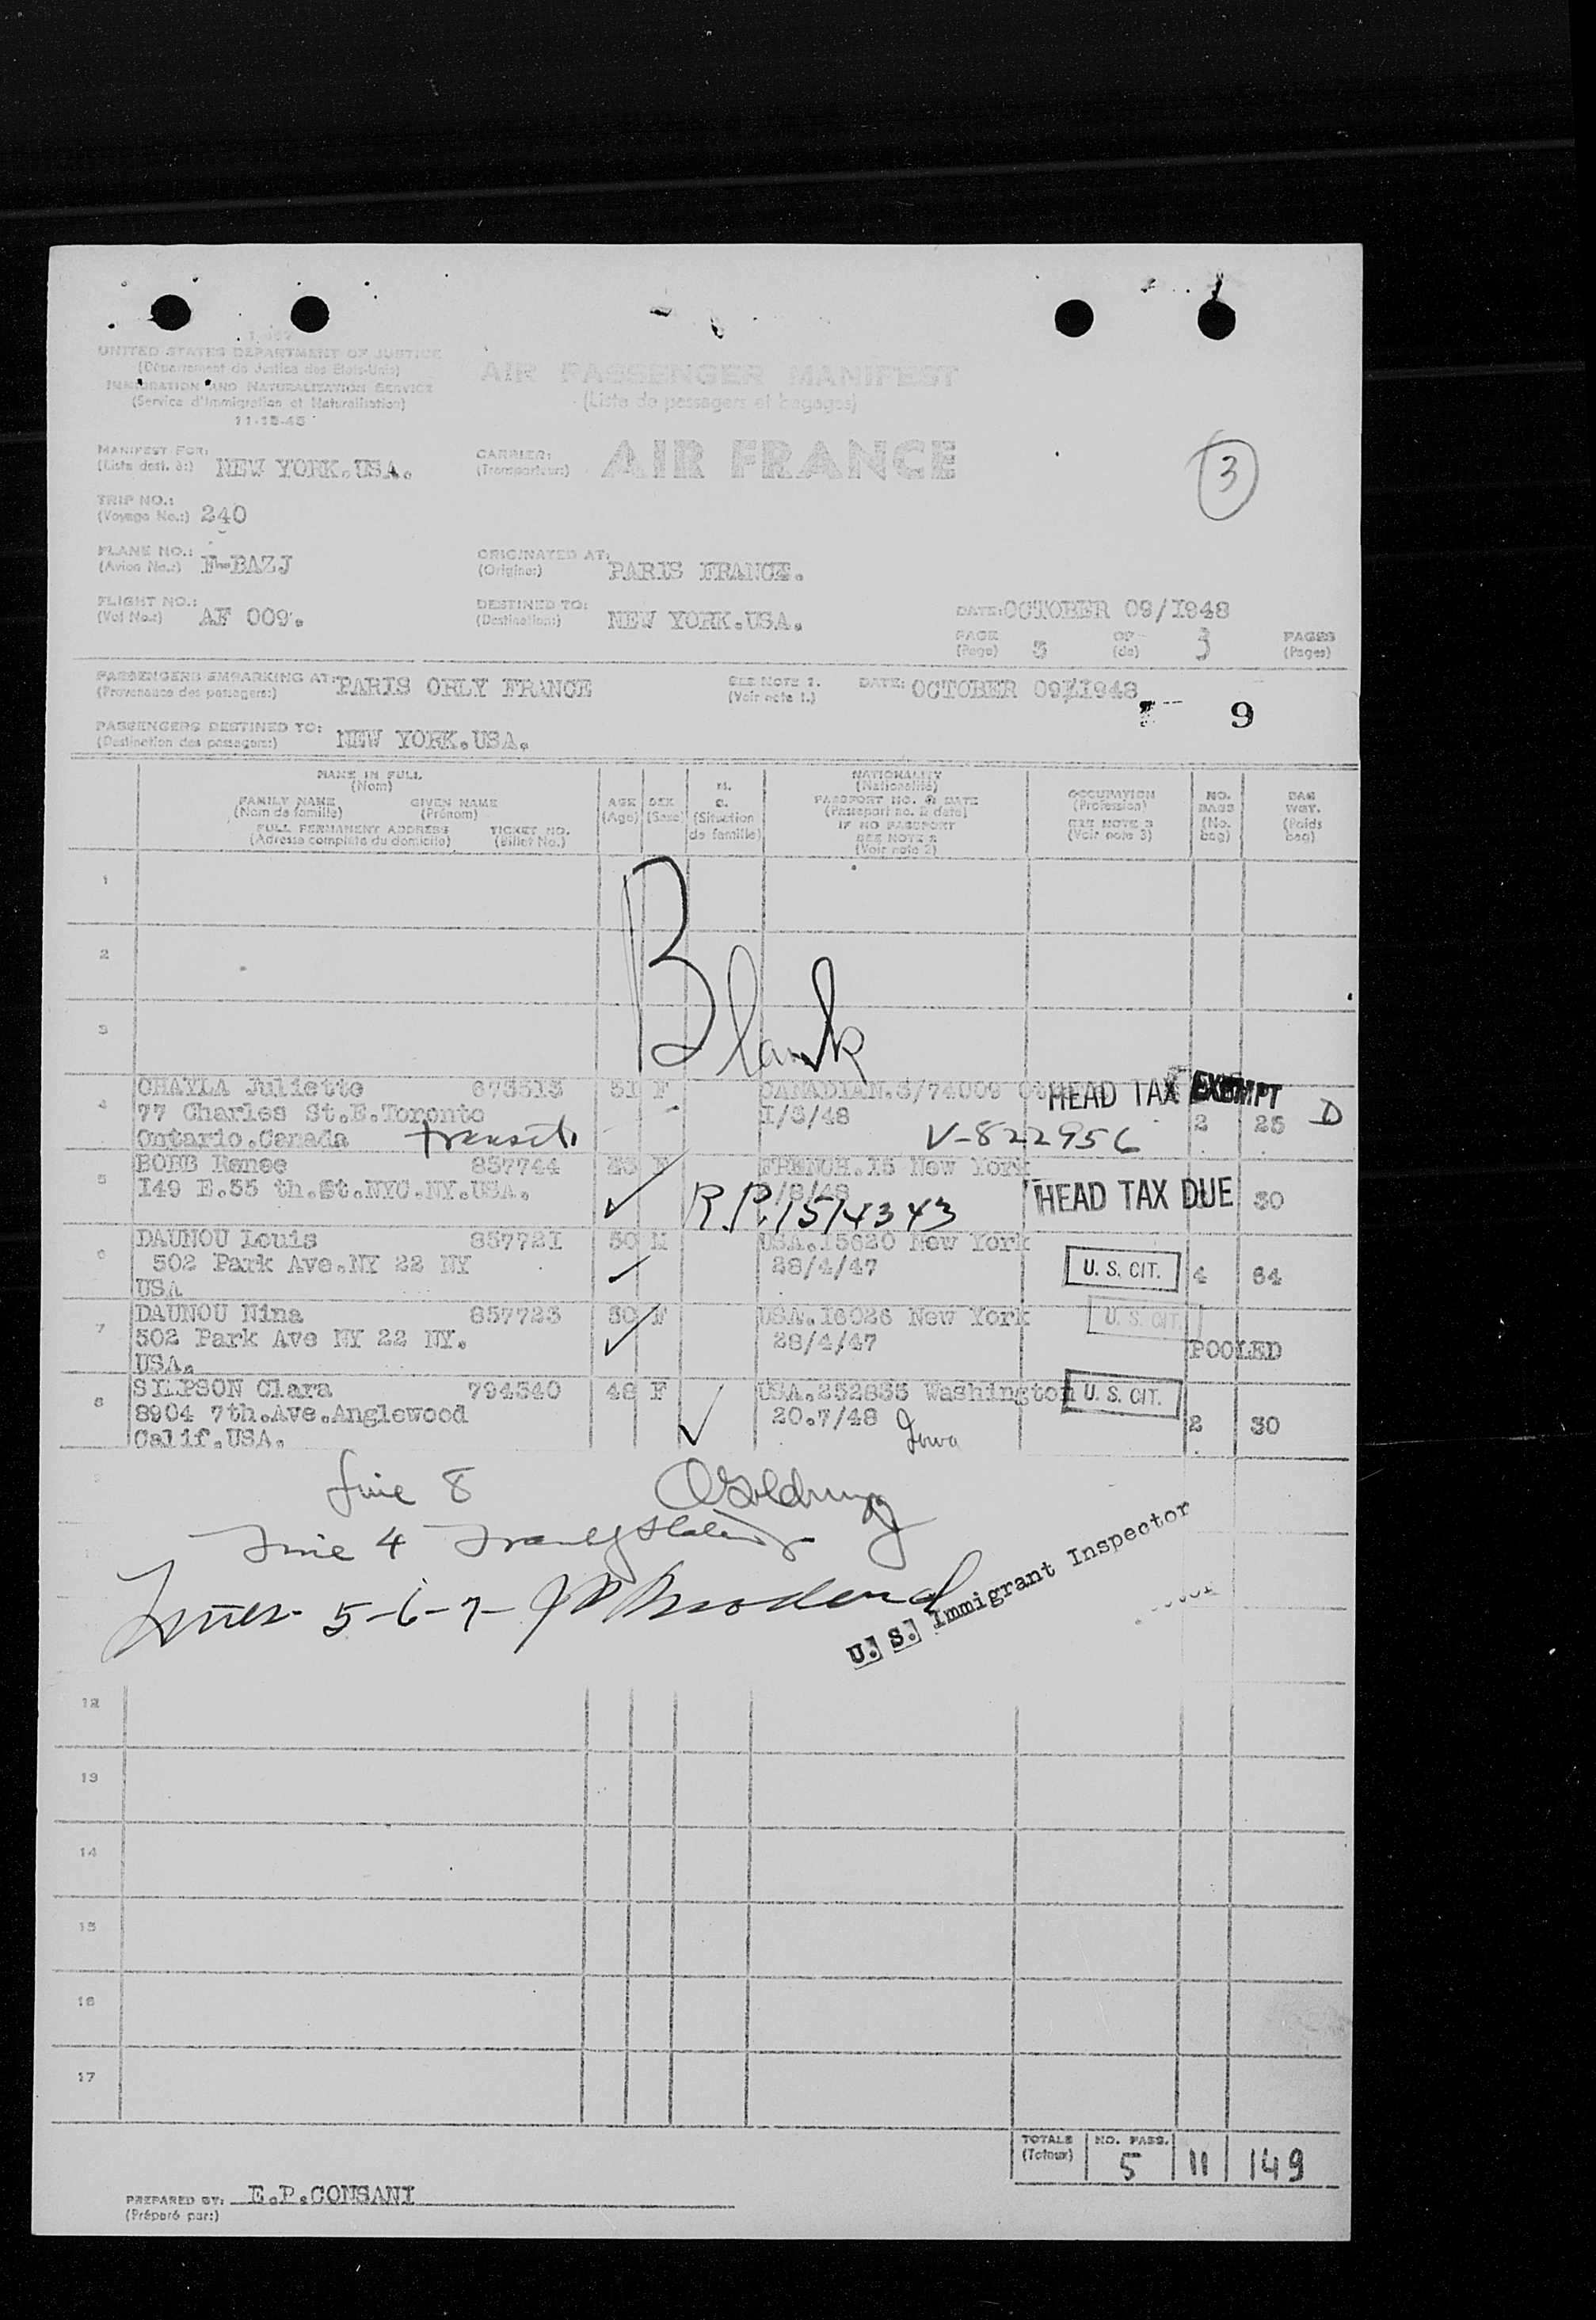 UNITED STATES DEPARTMENT OF JUSTICE
(Département de Justice des Etats-Unis)
IMMIGRATION AND NATURALIZATION SERVICE
(Service d'Immigration et Naturalisation)
11-15-45
AIR PASSENGER MANIFEST
(Liste de passagers et bagages)
MANIFEST FOR: NEW YORK.USA.
(Liste dest. à:)
CARRIER: AIR FRANCE
(Transporteur:)
3
TRIP NO.: 240
(Voyage No.:)
PLANE NO.: F-BAZJ
(Avion No.:)
ORIGINATED AT: PARIS FRANCE.
(Origine:)
FLIGHT NO.: AF 009.
(Vol No.:)
DESTINED TO: NEW YORK.USA.
(Destination:)
DATE: OCTOBER 09/I948
PAGE 3 OF 3 PAGES
(Page) (de) (Pages)
PASSENGERS EMBARKING AT: PARIS ORLY FRANCE
(Provenance des passagers:)
SEE NOTE 1.
(Voir note 1.)
DATE: OCTOBER 09/I948
9
PASSENGERS DESTINED TO: NEW YORK.USA.
(Destination des passagers:)
NAME IN FULL
(Nom)
FAMILY NAME GIVEN NAME
(Nom de famille) (Prénom)
FULL PERMANENT ADDRESS TICKET NO.
(Adresse complète du domicile) (Billet No.)
AGE
(Age)
SEX
(Sexe)
M.
C.
(Situation
de famille)
NATIONALITY
(Nationalité)
PASSPORT NO. & DATE
(Passeport no. & date)
IF NO PASSPORT
SEE NOTE 2
(Voir note 2)
OCCUPATION
(Profession)
SEE NOTE 3
(Voir note 3)
NO.
BAGS
(No.
bag)
BAG
WGT.
(Poids
bag)
1
2
3
Blank
4 CHAYLA Juliette 673513 51 F CANADIAN.3/74009 HEAD TAX EXEMPT
77 Charles St.E.Toronto I/3/48 2 25 D
Ontario.Canada transit V-822956
5 BOBB Renee 857744 F FRENCH.15 New York
I49 E.55 th.St.NYC.NY.USA. /8/48 HEAD TAX DUE 30
R.P.1514343
6 DAUNOU Louis 85772I 50 M USA.I5620 New York
502 Park Ave.NY 22 NY 28/4/47 U. S. CIT. 4 64
USA
7 DAUNOU Nina 857723 50 F USA.I6026 New York U. S. CIT.
502 Park Ave NY 22 NY. 28/4/47 POOLED
USA.
8 SIMPSON Clara 794340 48 F USA.252835 Washington U. S. CIT.
8904 7th.Ave.Anglewood 20.7/48 Iowa 2 30
Calif.USA.
Line 8 Goldring
Line 4
Lines 5-6-7-
U. S. Immigrant Inspector
12
13
14
15
16
17
TOTALS NO. PASS.
(Totaux) 5 11 149
PREPARED BY: E.P.CONSANI
(Préparé par:)